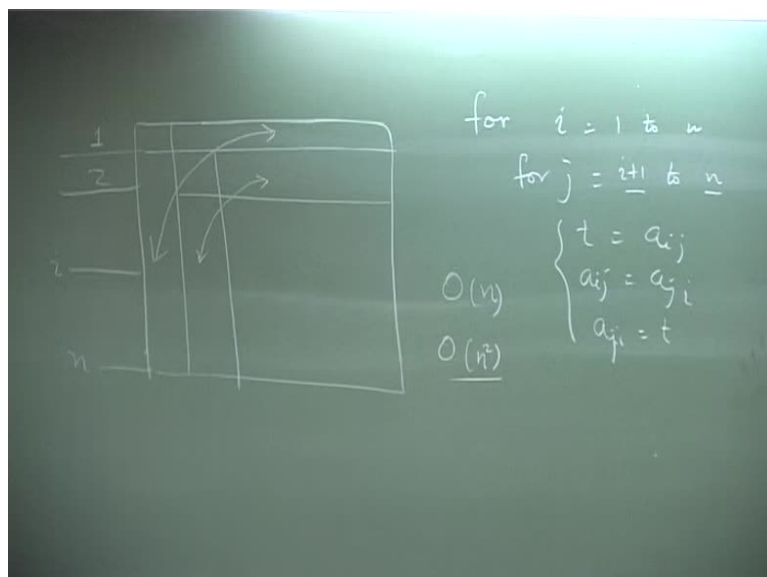 1
2
i
n
for i = 1 to n
for j = i+1 to n
t = aij
aij = aji
aji = t
O(n)
O(n²)